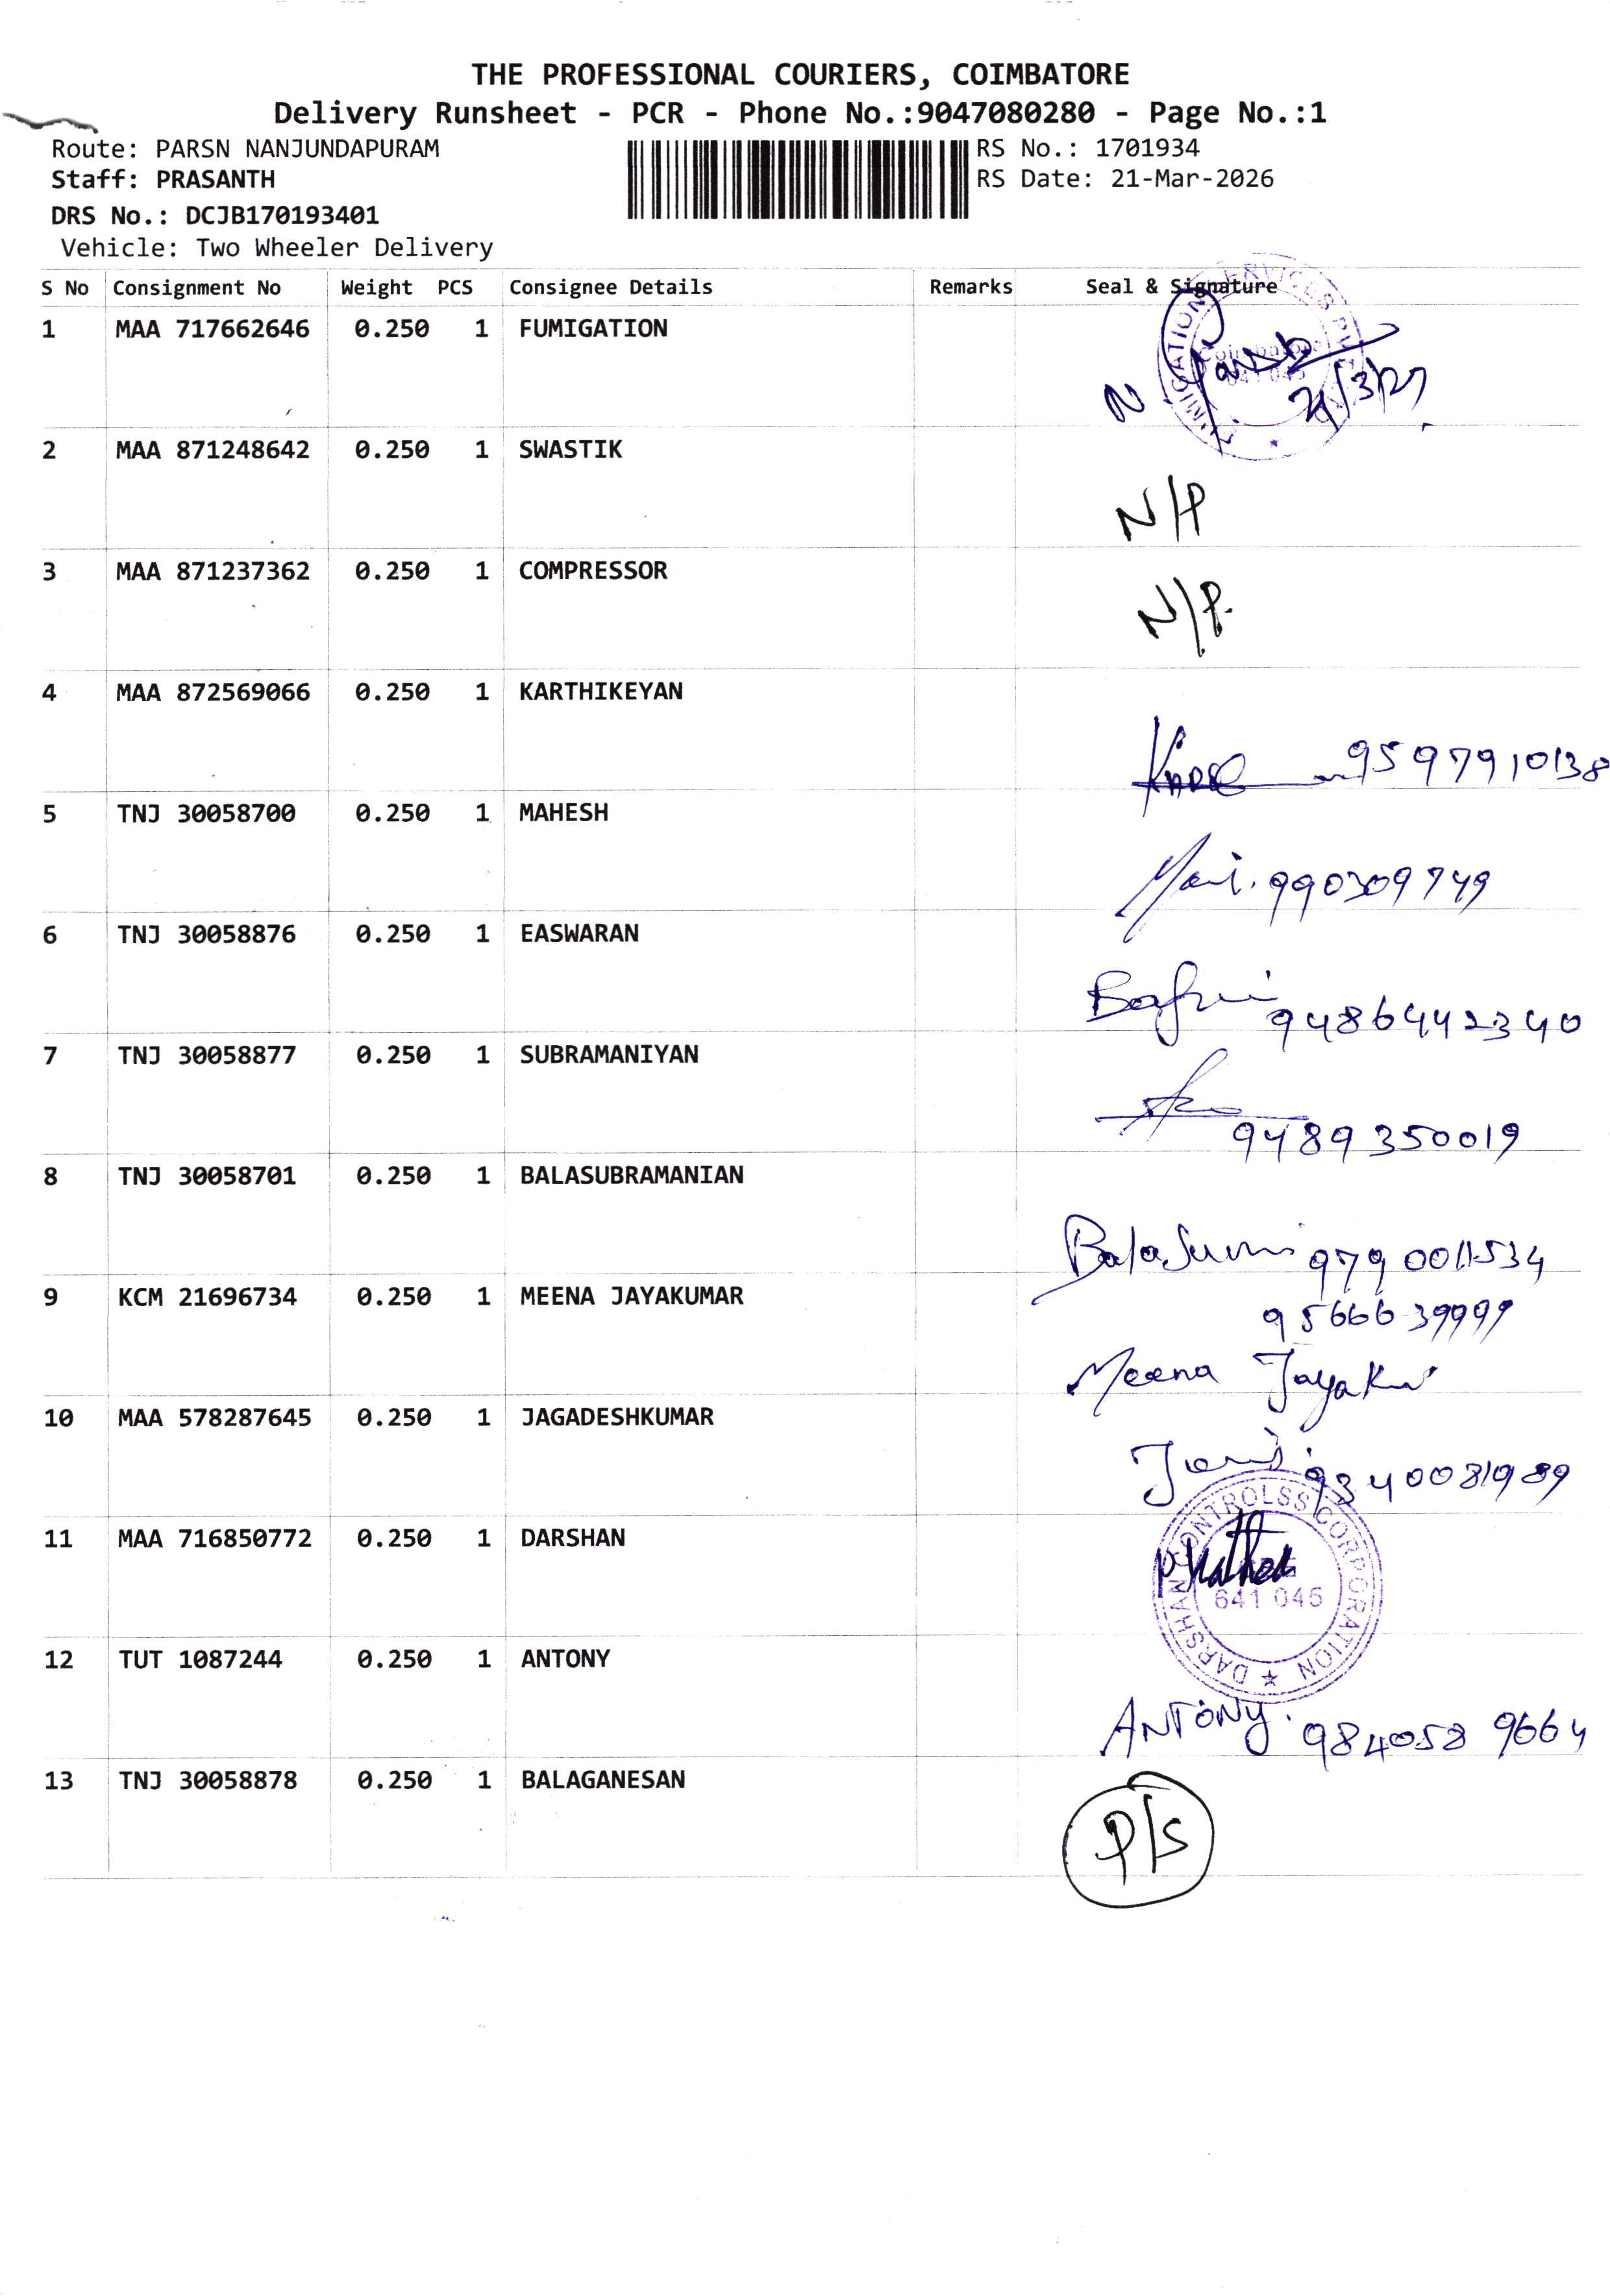 THE PROFESSIONAL COURIERS, COIMBATORE
Delivery Runsheet - PCR - Phone No.:9047080280 - Page No.:1
Route: PARSN NANJUNDAPURAM
RS No.: 1701934
Staff: PRASANTH
RS Date: 21-Mar-2026
DRS No.: DCJB170193401
Vehicle: Two Wheeler Delivery
S No Consignment No Weight PCS Consignee Details Remarks Seal & Signature
1 MAA 717662646 0.250 1 FUMIGATION
Coimbatore
2 MAA 871248642 0.250 1 SWASTIK
N/P
3 MAA 871237362 0.250 1 COMPRESSOR
N/P.
4 MAA 872569066 0.250 1 KARTHIKEYAN
9597910138
5 TNJ 30058700 0.250 1 MAHESH
990309749
6 TNJ 30058876 0.250 1 EASWARAN
9486442340
7 TNJ 30058877 0.250 1 SUBRAMANIYAN
9489350019
8 TNJ 30058701 0.250 1 BALASUBRAMANIAN
9790011534
9 KCM 21696734 0.250 1 MEENA JAYAKUMAR
9566639999
Meena
10 MAA 578287645 0.250 1 JAGADESHKUMAR
11 MAA 716850772 0.250 1 DARSHAN
DARSHAN CONTROLSS CORPORATION
641 045
12 TUT 1087244 0.250 1 ANTONY
ANTONY. 9840589664
13 TNJ 30058878 0.250 1 BALAGANESAN
P/S